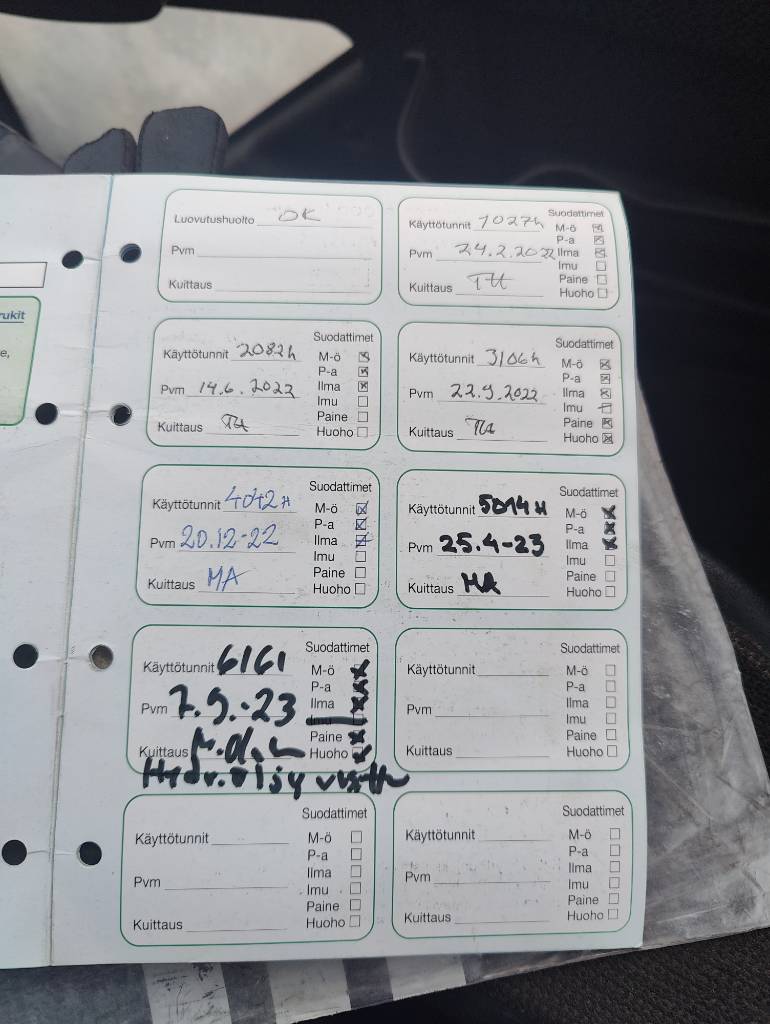 rukit
e,
Luovutushuolto OK
Pvm
Kuittaus
Suodattimet
Käyttötunnit 1027h M-ö
P-a
Pvm 24.2.2022 Ilma
Imu
Kuittaus Paine
Huoho
Suodattimet
Käyttötunnit 2082h M-ö
P-a
Pvm 14.6.2022 Ilma
Imu
Kuittaus Paine
Huoho
Suodattimet
Käyttötunnit 3106h M-ö
P-a
Pvm 22.9.2022 Ilma
Imu
Kuittaus Paine
Huoho
Suodattimet
Käyttötunnit 4042H M-ö
P-a
Pvm 20.12-22 Ilma
Imu
Kuittaus MA Paine
Huoho
Suodattimet
Käyttötunnit 5014H M-ö
P-a
Pvm 25.4-23 Ilma
Imu
Kuittaus MA Paine
Huoho
Suodattimet
Käyttötunnit 6161 M-ö
P-a
Pvm 7.9.-23 Ilma
Imu
Kuittaus Paine
Huoho
Hydr.öljy
Suodattimet
Käyttötunnit M-ö
P-a
Pvm Ilma
Imu
Kuittaus Paine
Huoho
Suodattimet
Käyttötunnit M-ö
P-a
Pvm Ilma
Imu
Kuittaus Paine
Huoho
Suodattimet
Käyttötunnit M-ö
P-a
Pvm Ilma
Imu
Kuittaus Paine
Huoho